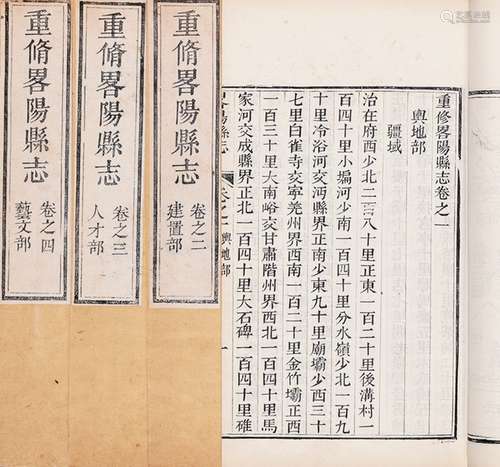 重修畧陽縣志卷之一
輿地部
疆域
治在府西少北二百八十里正東一百二十里後溝村一
百四十里小塥河少南一百四十里分水嶺少北一百九
十里冷浴河交沔縣界正南少東九十里廟壩少西三十
七里白雀寺交寧羌州界西南一百二十里金竹壩正西
一百三十里大南峪交甘肅階州界西北一百四十里馬
家河交成縣界正北一百四十里大石碑一百四十里碓
畧陽縣志 卷之一 輿地部 一
重脩畧陽縣志
卷之二
建置部
重脩畧陽縣志
卷之三
人才部
重脩畧陽縣志
卷之四
藝文部